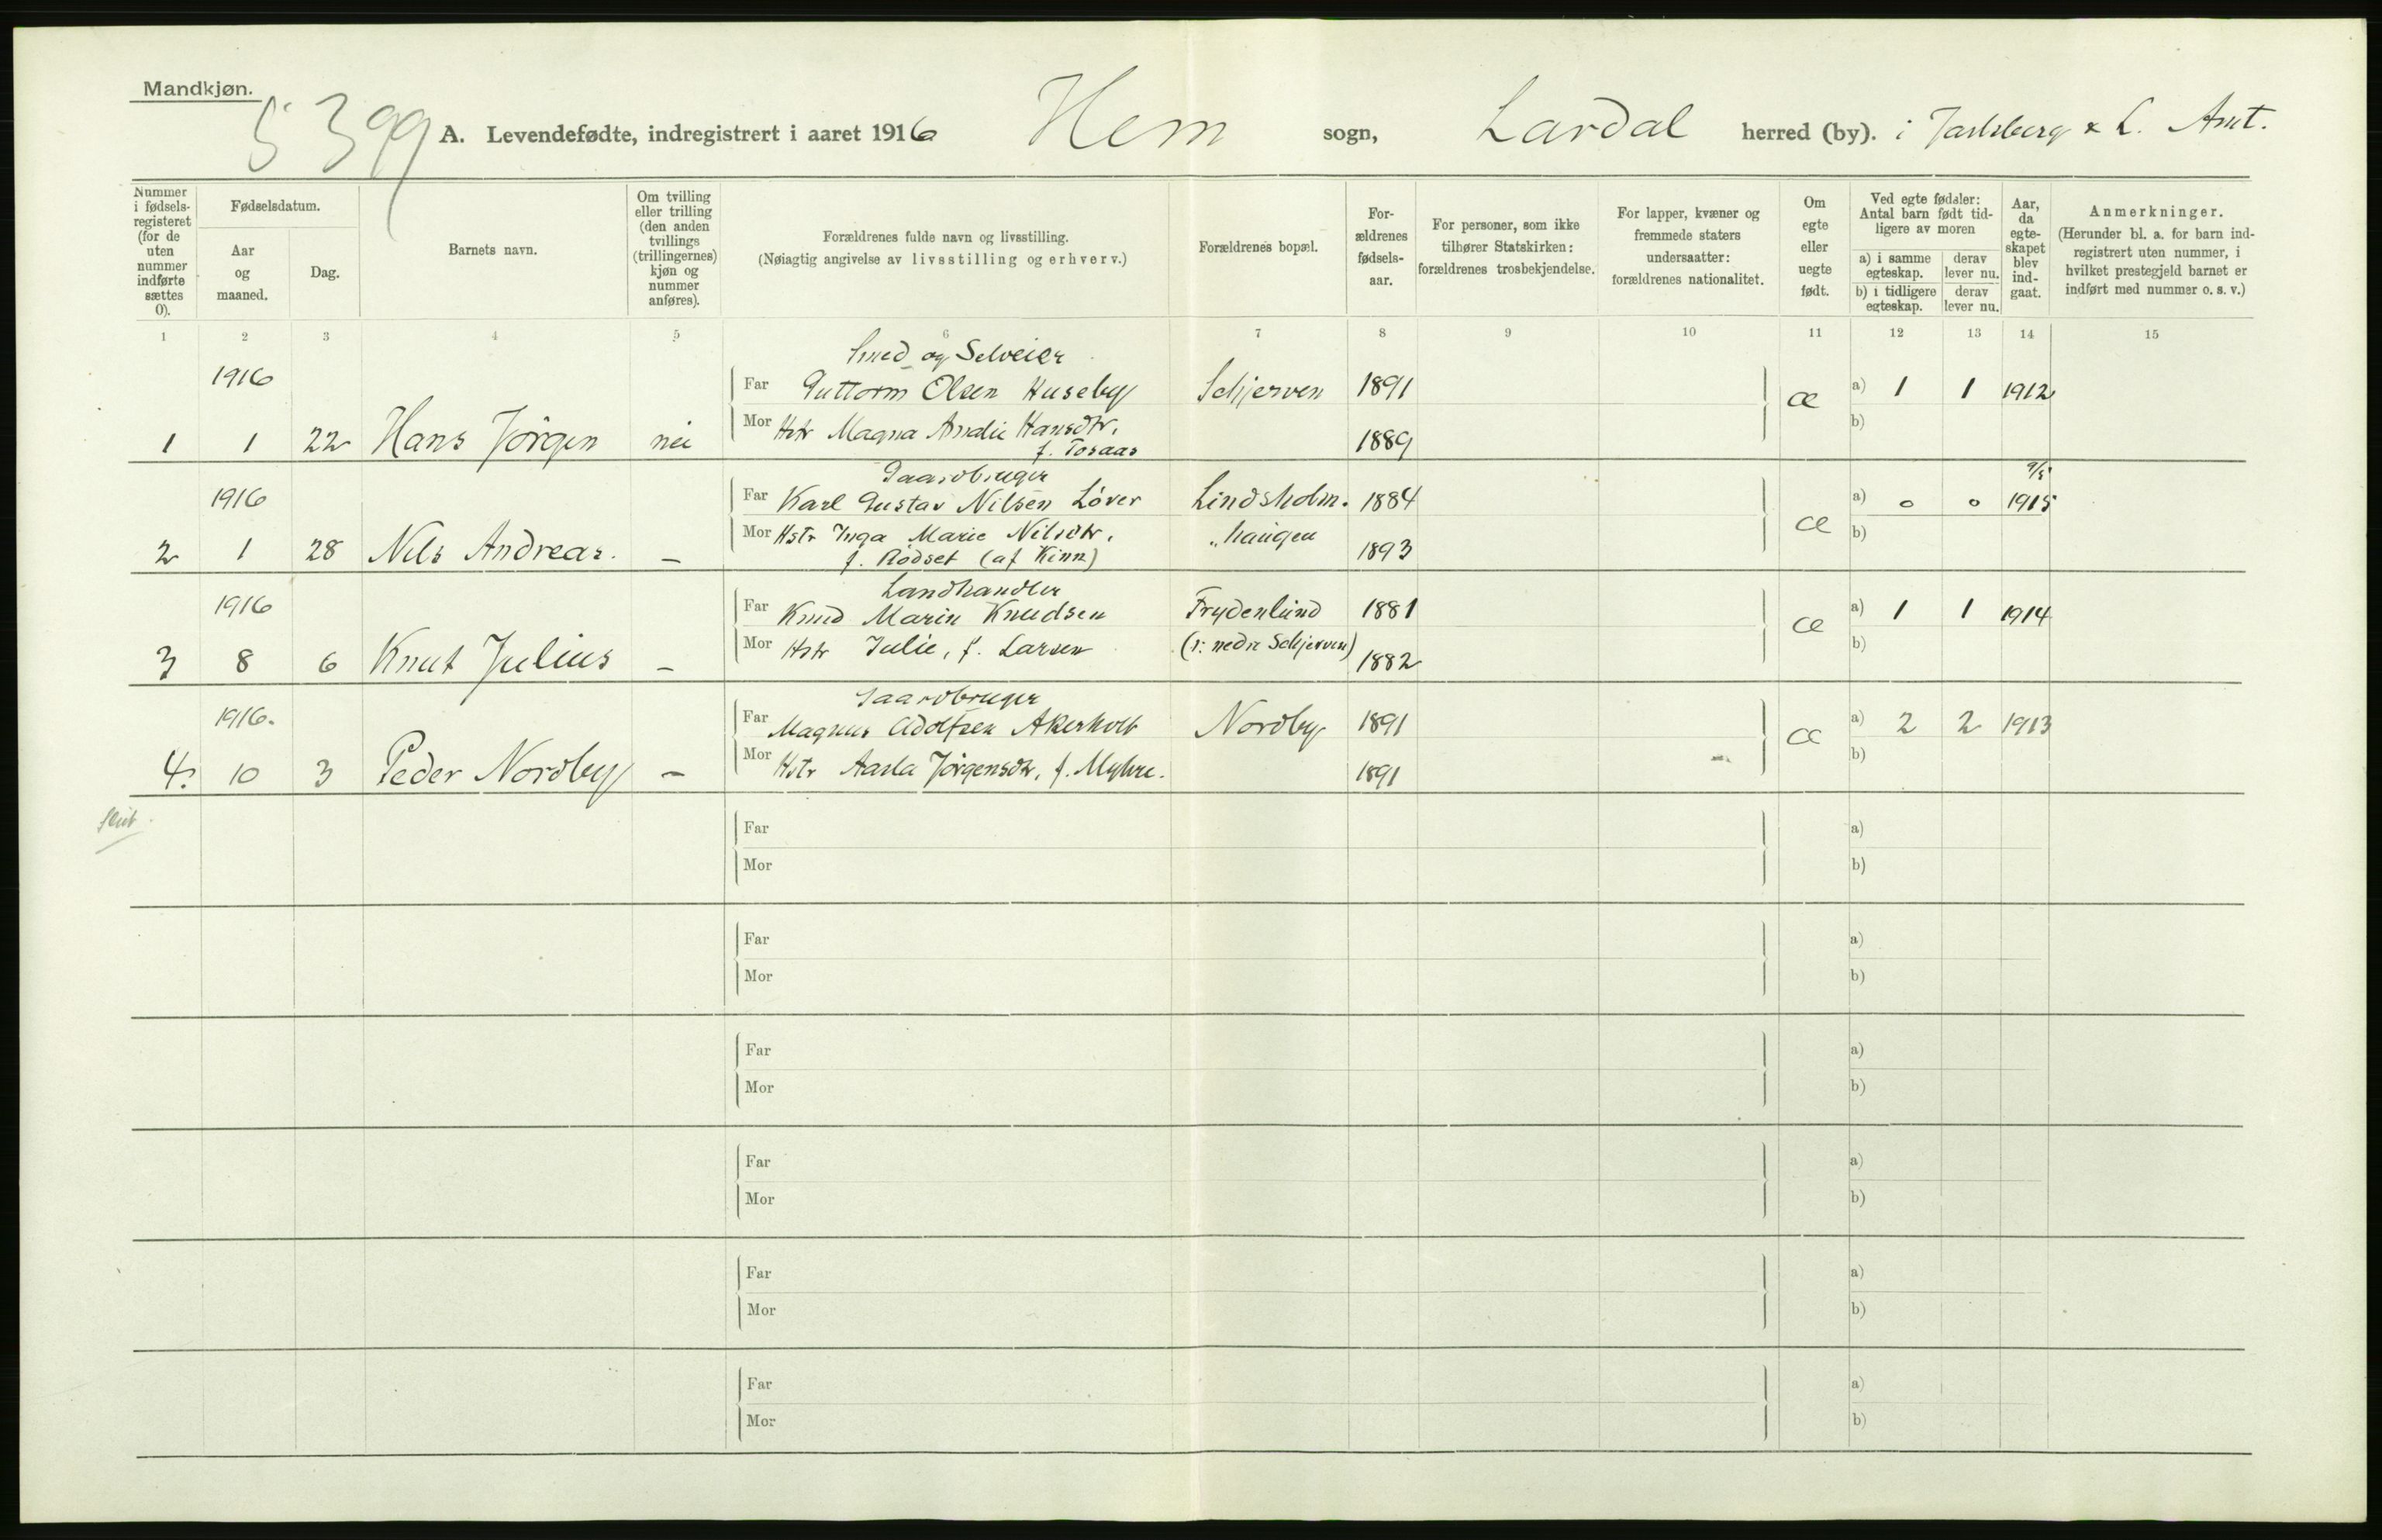 Mandkjøn.
5399
A. Levendefødte, indregistrert i aaret 1916 Hem sogn, Lardal herred (by). i Jarlsberg & L. Amt.
Nummer i fødsels-registeret (for de uten nummer indførte sættes 0).
Fødselsdatum.
Aar og maaned.
Dag.
Barnets navn.
Om tvilling eller trilling (den anden tvillings (trillingernes) kjøn og nummer anføres).
Forældrenes fulde navn og livsstilling.
(Nøiagtig angivelse av livsstilling og erhverv.)
Forældrenes bopæl.
For-ældrenes fødsels-aar.
For personer, som ikke tilhører Statskirken: forældrenes trosbekjendelse.
For lapper, kvæner og fremmede staters undersaatter: forældrenes nationalitet.
Om egte eller uegte født.
Ved egte fødsler: Antal barn født tid-ligere av moren
a) i samme egteskap.
derav lever nu.
b) i tidligere egteskap.
derav lever nu.
Aar, da egte-skapet blev ind-gaat.
Anmerkninger.
(Herunder bl. a. for barn ind-registrert uten nummer, i hvilket prestegjeld barnet er indført med nummer o. s. v.)
1 2 3 4 5 6 7 8 9 10 11 12 13 14 15
Smed og Selveier
1916 Far Guttorm Olsen Huseby Schjerven 1891 æ a) 1 1 1912
1 1 22 Hans Jörgen nei Mor Hstr Magna Amalie Hansdtr. 1889 b)
f. Tosaas
Gaardbruger 9/5
1916 Far Karl Gustav Nilsen Löver Lindsholm. 1884 æ a) 0 0 1915
2 1 28 Nils Andreas. – Mor Hstr Inga Marie Nilsdtr. "haugen 1893 b)
f. Rödset (af Kinn)
Landhandler
1916 Far Knud Marin Knudsen Frydenlund 1881 æ a) 1 1 1914
3 8 6 Knut Julius – Mor Hstr Julie, f. Larsen (ɔ: nedre Schjerven) 1882 b)
Gaardbruger
1916. Far Magnus Adolfsen Akerholt Nordby 1891 æ a) 2 2 1913
4. 10 3 Peder Nordby – Mor Hstr Aasla Jörgensdtr. f. Myhre. 1891 b)
slut
Far a)
Mor b)
Far a)
Mor b)
Far a)
Mor b)
Far a)
Mor b)
Far a)
Mor b)
Far a)
Mor b)